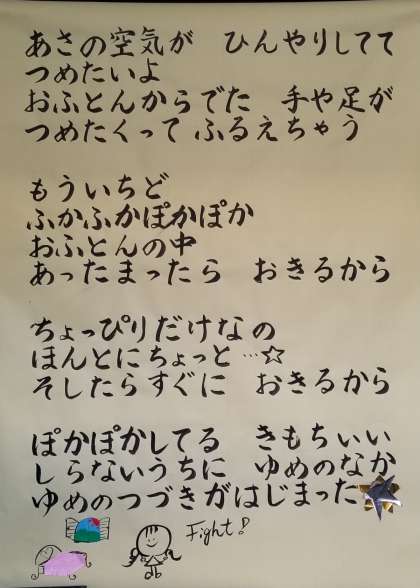 あさの空気が　ひんやりしてて
つめたいよ
おふとんからでた　手や足が
つめたくって ふるえちゃう
もういちど
ふかふかぽかぽか
おふとんの中
あったまったら　おきるから
ちょっぴりだけなの
ほんとにちょっと…☆
そしたらすぐに　おきるから
ぽかぽかしてる　きもちいい
しらないうちに　ゆめのなか
ゆめのつづきがはじまった
Fight!